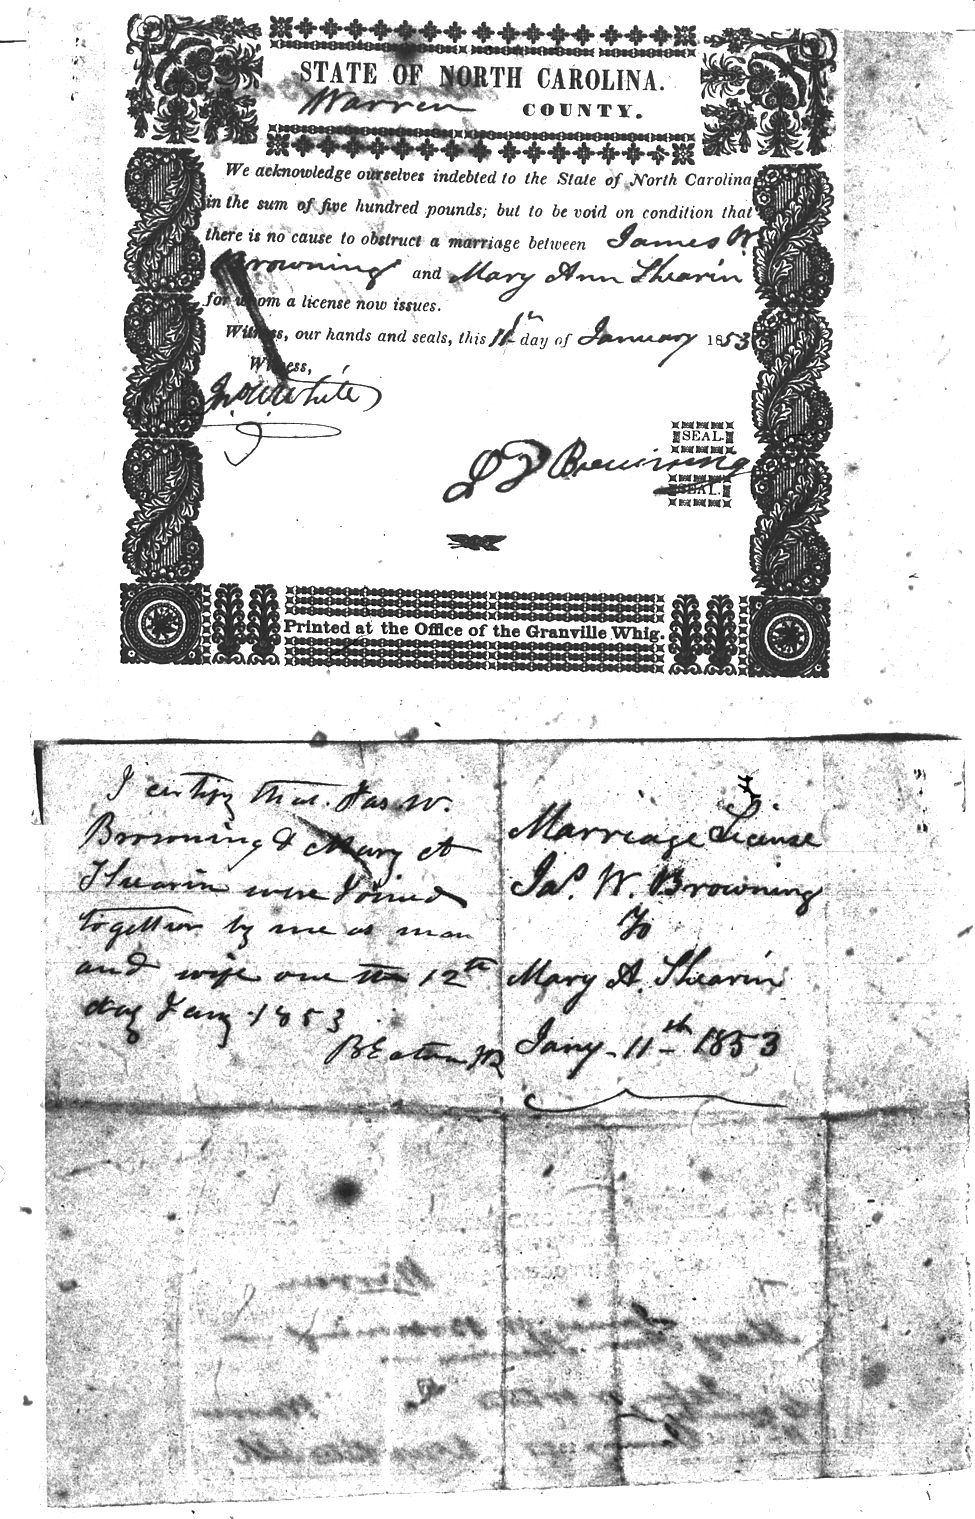 STATE OF NORTH CAROLINA.
Warren COUNTY.
We acknowledge ourselves indebted to the State of North Carolina
in the sum of five hundred pounds; but to be void on condition that
there is no cause to obstruct a marriage between James W.
Browning and Mary Ann Shearin
for whom a license now issues.
Witness, our hands and seals, this 11th day of January 1853
Witness,
Jno W White
SEAL.
Browning
SEAL.
Printed at the Office of the Granville Whig.
I certify that Jas W.
Browning & Mary A
Shearin were Joined
together by me as man
and wife one the 12th
day Jany 1853
B Eaton JP
Marriage License
Jas. W. Browning
To
Mary A. Shearin
Jany. 11th 1853